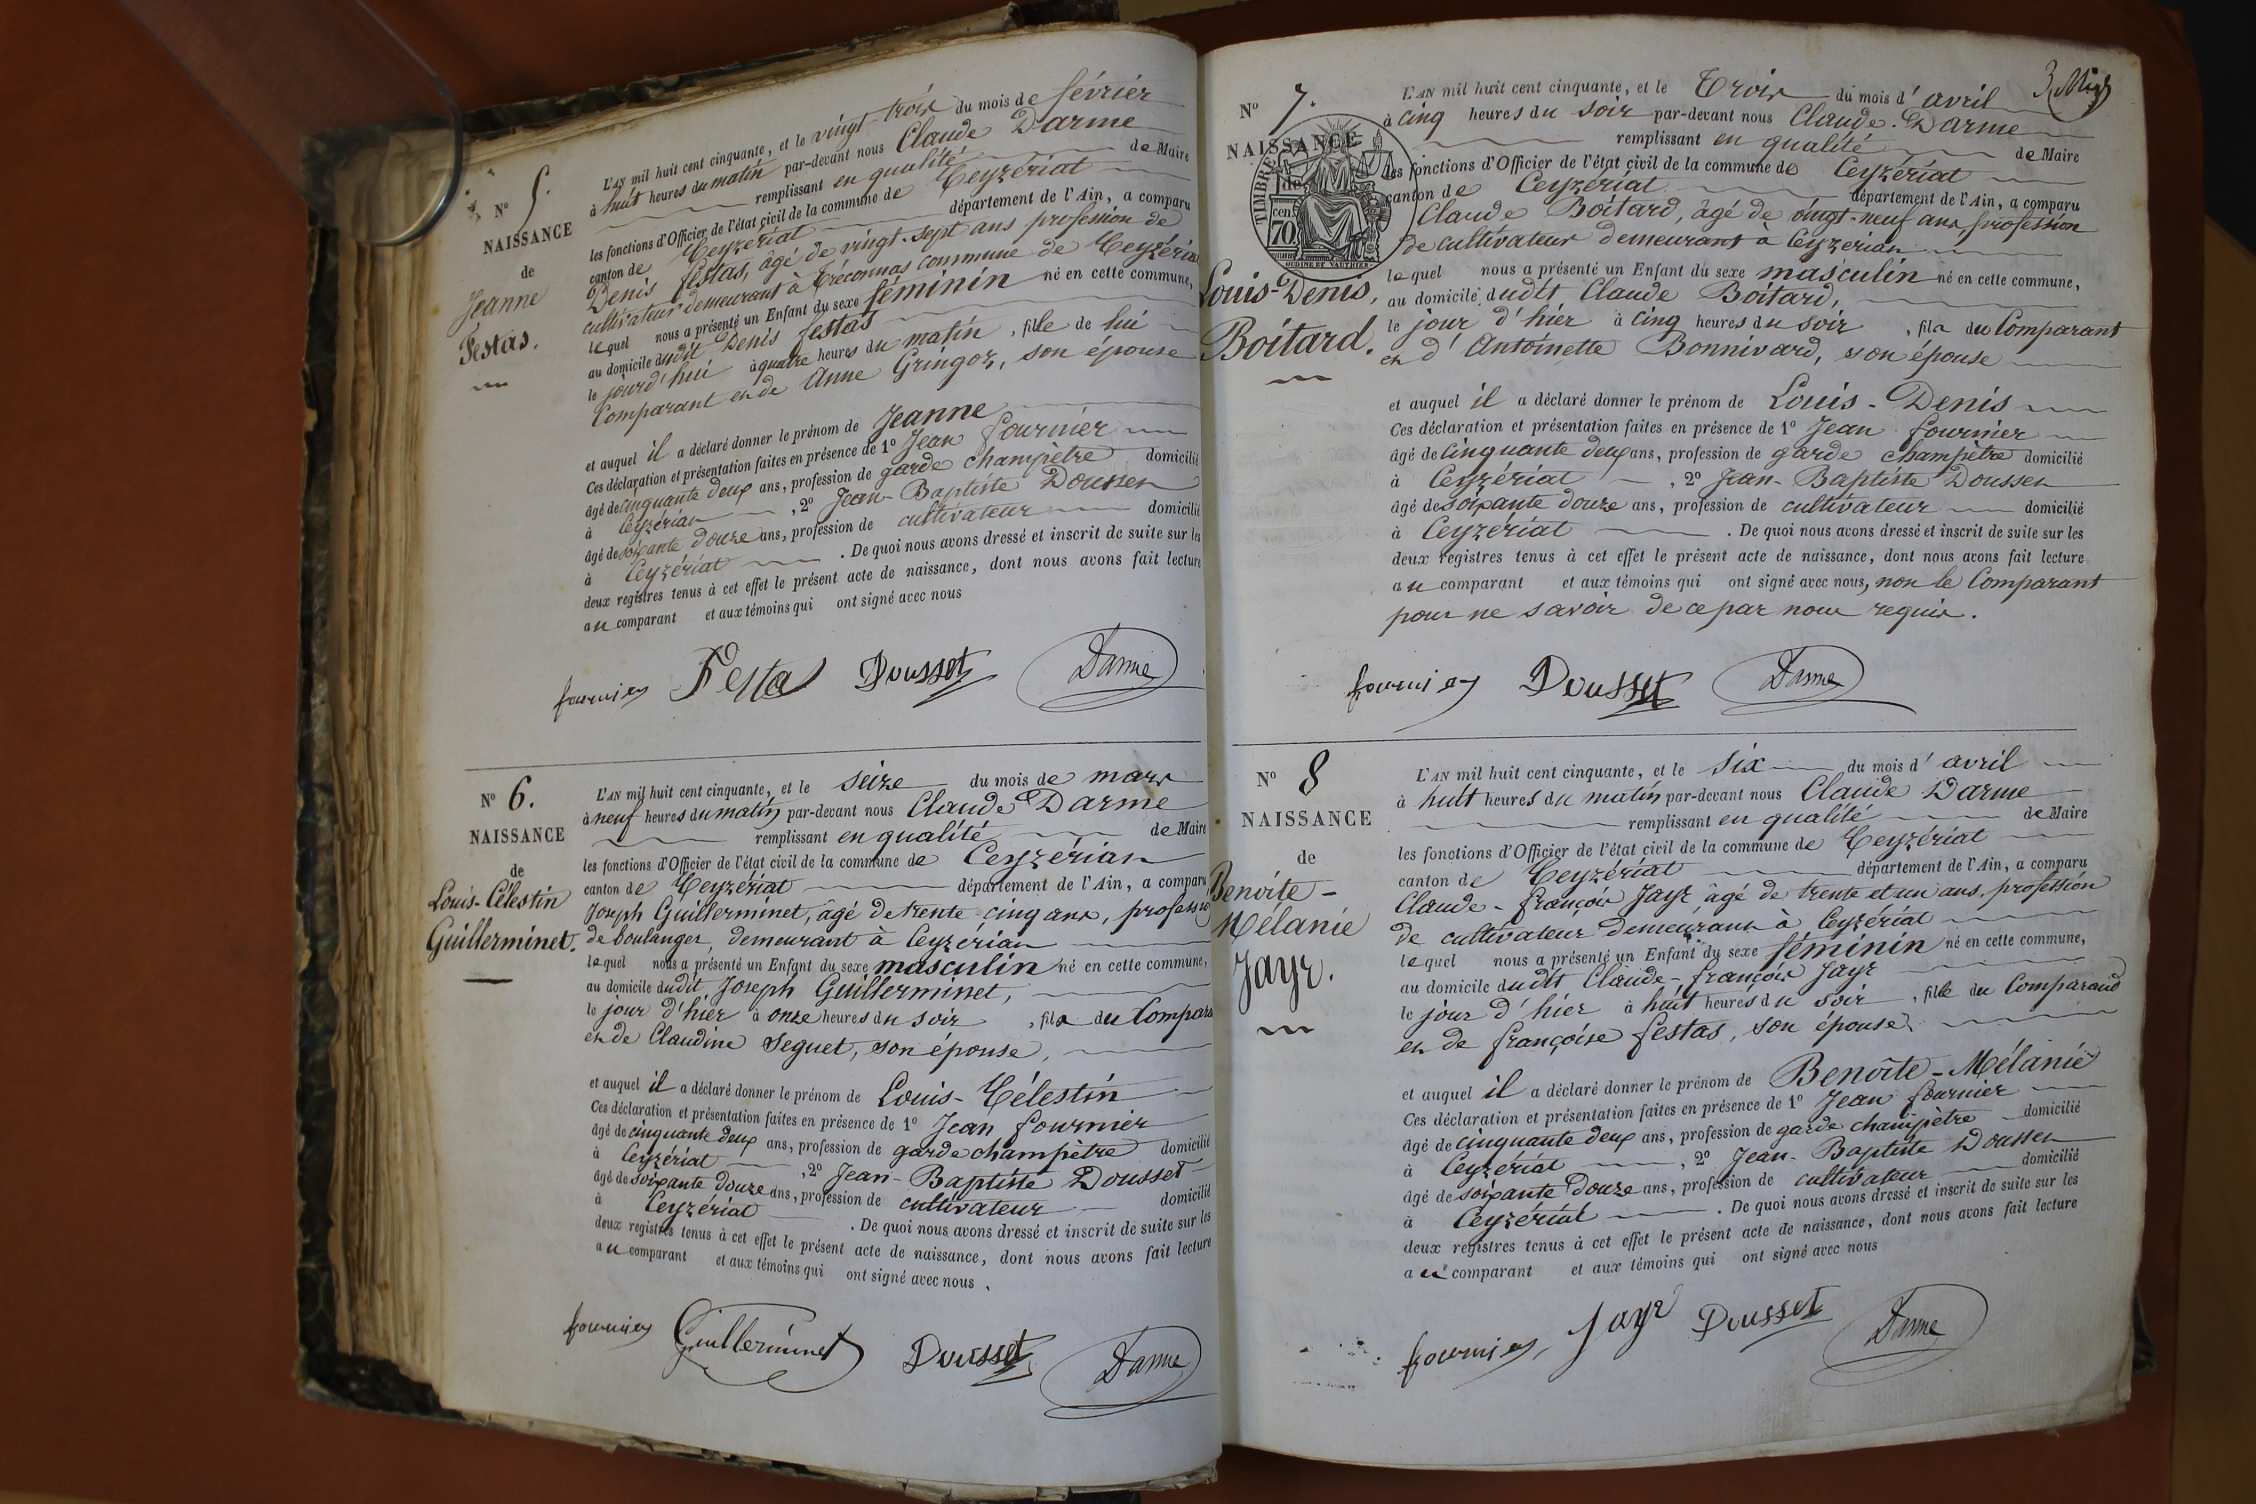 N° 5.
NAISSANCE
de
Jeanne
Festas.
L'AN mil huit cent cinquante, et le vingt trois du mois de février
à huit heures du matin par-devant nous Claude Darme
remplissant en qualité de Maire
les fonctions d'Officier de l'état civil de la commune de Ceyzériat
canton de Ceyzériat département de l'Ain, a comparu
Denis Festas, âgé de vingt-sept ans profession de
cultivateur demeurant à Tréconnas commune de Ceyzériat
lequel nous a présenté un Enfant du sexe féminin né en cette commune,
au domicile dudit Denis Festas
le jourd'hui à quatre heures du matin, fille de lui
Comparant et de Anne Gringoz, son épouse
et auquel il a déclaré donner le prénom de Jeanne
Ces déclaration et présentation faites en présence de 1° Jean fournier
âgé de cinquante deux ans, profession de garde champêtre domicilié
à Ceyzériat, 2° Jean-Baptiste Dousset
âgé de soixante douze ans, profession de cultivateur domicilié
à Ceyzériat. De quoi nous avons dressé et inscrit de suite sur les
deux registres tenus à cet effet le présent acte de naissance, dont nous avons fait lecture
au comparant et aux témoins qui ont signé avec nous
fournier Festa Dousset Darme
N° 6.
NAISSANCE
de
Louis-Célestin
Guillerminet.
L'AN mil huit cent cinquante, et le seize du mois de mars
à neuf heures du matin par-devant nous Claude Darme
remplissant en qualité de Maire
les fonctions d'Officier de l'état civil de la commune de Ceyzériat
canton de Ceyzériat département de l'Ain, a comparu
Joseph Guillerminet, âgé de trente-cinq ans, profession
de boulanger, demeurant à Ceyzériat
lequel nous a présenté un Enfant du sexe masculin né en cette commune,
au domicile dudit Joseph Guillerminet,
le jour d'hier à onze heures du soir, fils du Compara
et de Claudine Seguet, son épouse,
et auquel il a déclaré donner le prénom de Louis-Célestin
Ces déclaration et présentation faites en présence de 1° Jean fournier
âgé de cinquante deux ans, profession de garde champêtre domicilié
à Ceyzériat, 2° Jean-Baptiste Dousset
âgé de soixante douze ans, profession de cultivateur domicilié
à Ceyzériat. De quoi nous avons dressé et inscrit de suite sur les
deux registres tenus à cet effet le présent acte de naissance, dont nous avons fait lecture
au comparant et aux témoins qui ont signé avec nous.
fournier Guillerminet Dousset Darme
N° 7.
NAISSANCE
TIMBRE
de
cen
70
OUDINÉ ET VAUTHIER
Louis-Denis,
Boitard.
L'AN mil huit cent cinquante, et le Trois du mois d'avril
à cinq heures du soir par-devant nous Claude Darme
remplissant en qualité de Maire
les fonctions d'Officier de l'état civil de la commune de Ceyzériat
canton de Ceyzériat département de l'Ain, a comparu
Claude Boitard, âgé de vingt-neuf ans profession
de cultivateur demeurant à Ceyzériat
lequel nous a présenté un Enfant du sexe masculin né en cette commune,
au domicile dudit Claude Boitard,
le jour d'hier à cinq heures du soir, fils du Comparant
et d'Antoinette Bonnivard, son épouse
et auquel il a déclaré donner le prénom de Louis-Denis
Ces déclaration et présentation faites en présence de 1° Jean fournier
âgé de cinquante deux ans, profession de garde champêtre domicilié
à Ceyzériat, 2° Jean-Baptiste Dousset
âgé de soixante douze ans, profession de cultivateur domicilié
à Ceyzériat. De quoi nous avons dressé et inscrit de suite sur les
deux registres tenus à cet effet le présent acte de naissance, dont nous avons fait lecture
au comparant et aux témoins qui ont signé avec nous, non le Comparant
pour ne savoir de ce par nous requis.
fournier Dousset Darme
N° 8
NAISSANCE
de
Benoîte-
Mélanie
Jayr.
L'AN mil huit cent cinquante, et le six du mois d'avril
à huit heures du matin par-devant nous Claude Darme
remplissant en qualité de Maire
les fonctions d'Officier de l'état civil de la commune de Ceyzériat
canton de Ceyzériat département de l'Ain, a comparu
Claude-françois Jayr âgé de trente et un ans, profession
de cultivateur demeurant à Ceyzériat
lequel nous a présenté un Enfant du sexe féminin né en cette commune,
au domicile dudit Claude-françois Jayr
le jour d'hier à huit heures du soir, fille du Comparand
et de françoise festas, son épouse.
et auquel il a déclaré donner le prénom de Benoîte-Mélanie
Ces déclaration et présentation faites en présence de 1° Jean fournier
âgé de cinquante deux ans, profession de garde champêtre domicilié
à Ceyzériat, 2° Jean-Baptiste Dousset
âgé de soixante douze ans, profession de cultivateur domicilié
à Ceyzériat. De quoi nous avons dressé et inscrit de suite sur les
deux registres tenus à cet effet le présent acte de naissance, dont nous avons fait lecture
au comparant et aux témoins qui ont signé avec nous
fournier, Jayr Dousset Darme